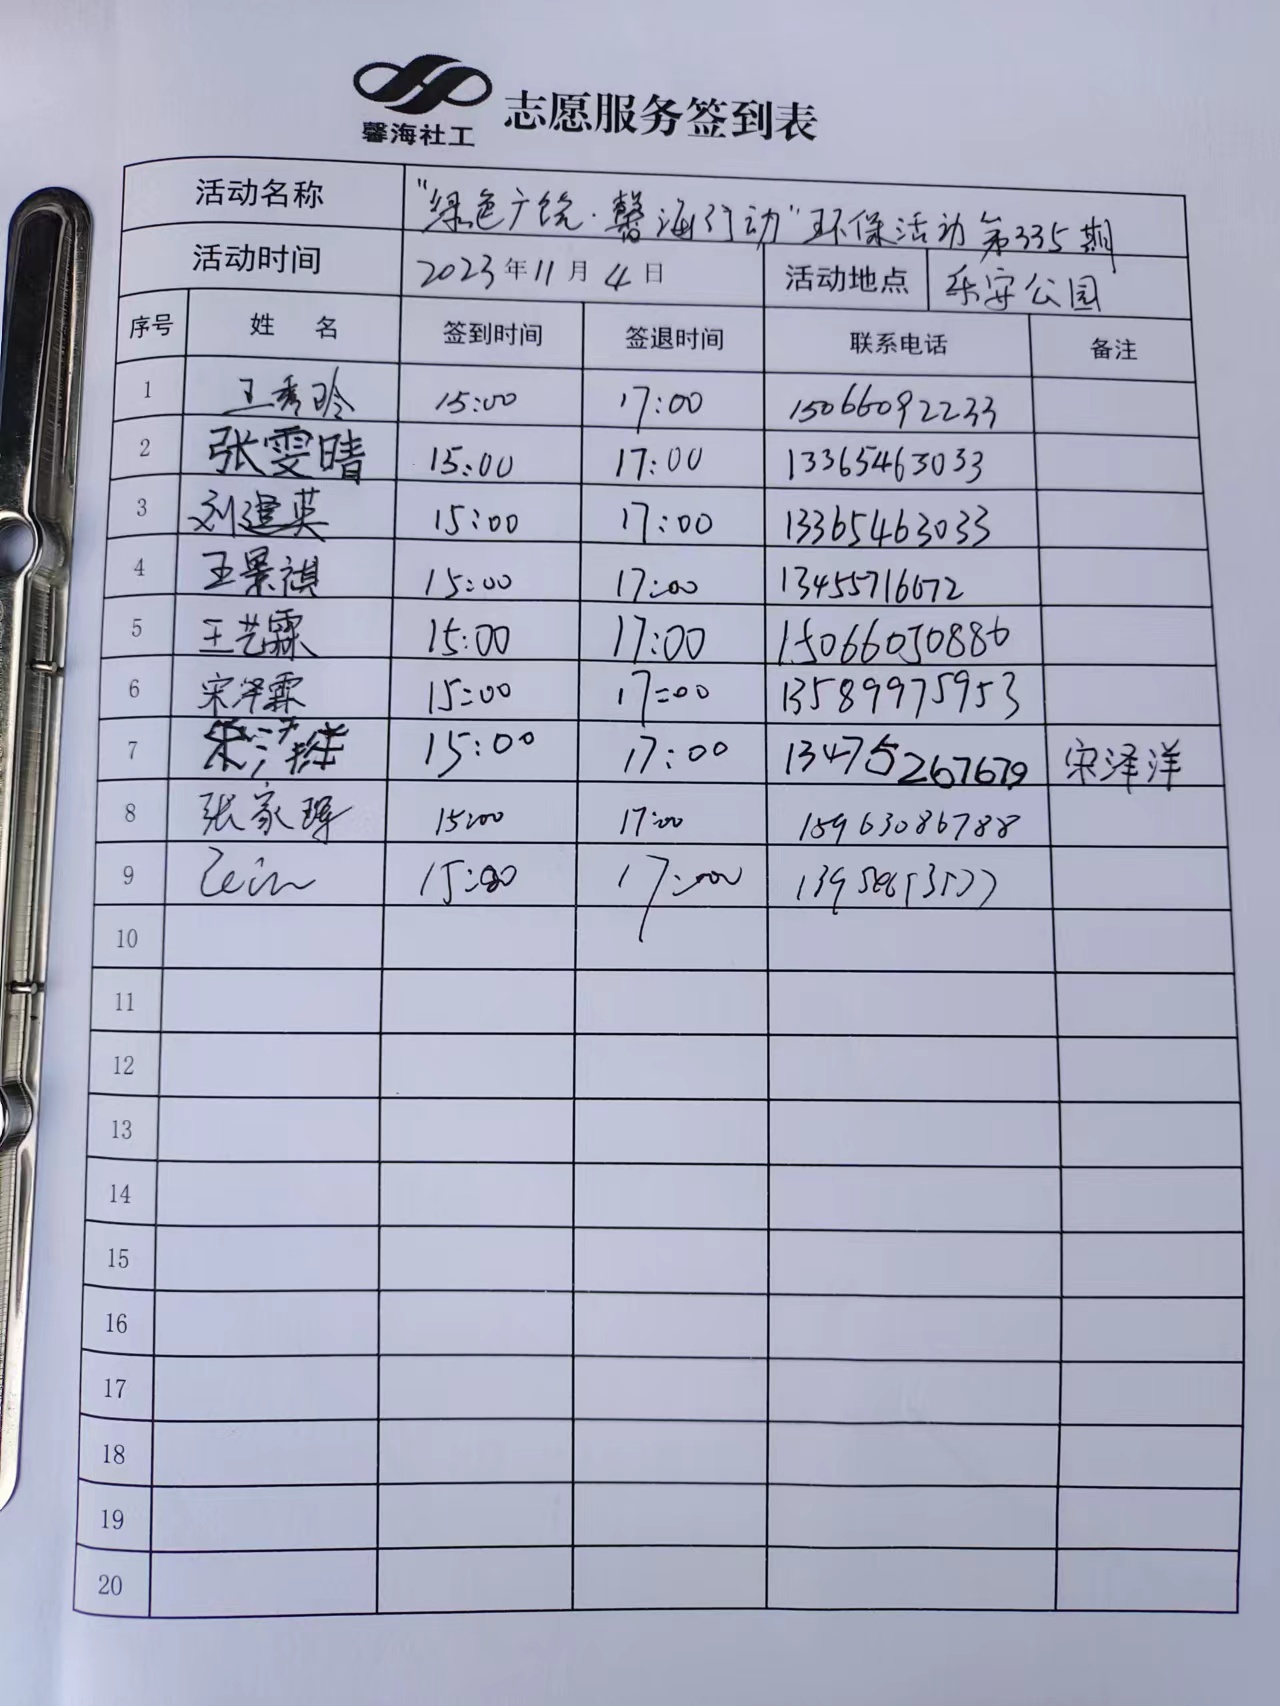 馨海社工 志愿服务签到表
活动名称 "绿色广饶·馨海行动"环保活动第335期
活动时间 2023年11月4日 活动地点 乐安公园
序号 姓 名 签到时间 签退时间 联系电话 备注
1 王秀玲 15:00 17:00 15066092233
2 张雯晴 15:00 17:00 13365463033
3 刘建英 15:00 17:00 13365463033
4 王景祺 15:00 17:00 13455716672
5 王艺霖 15:00 17:00 15066050886
6 宋泽霖 15:00 17:00 13589975953
7 15:00 17:00 13475267679 宋泽洋
8 张家 15:00 17:00 18963086788
9 15:00 17:00
10
11
12
13
14
15
16
17
18
19
20